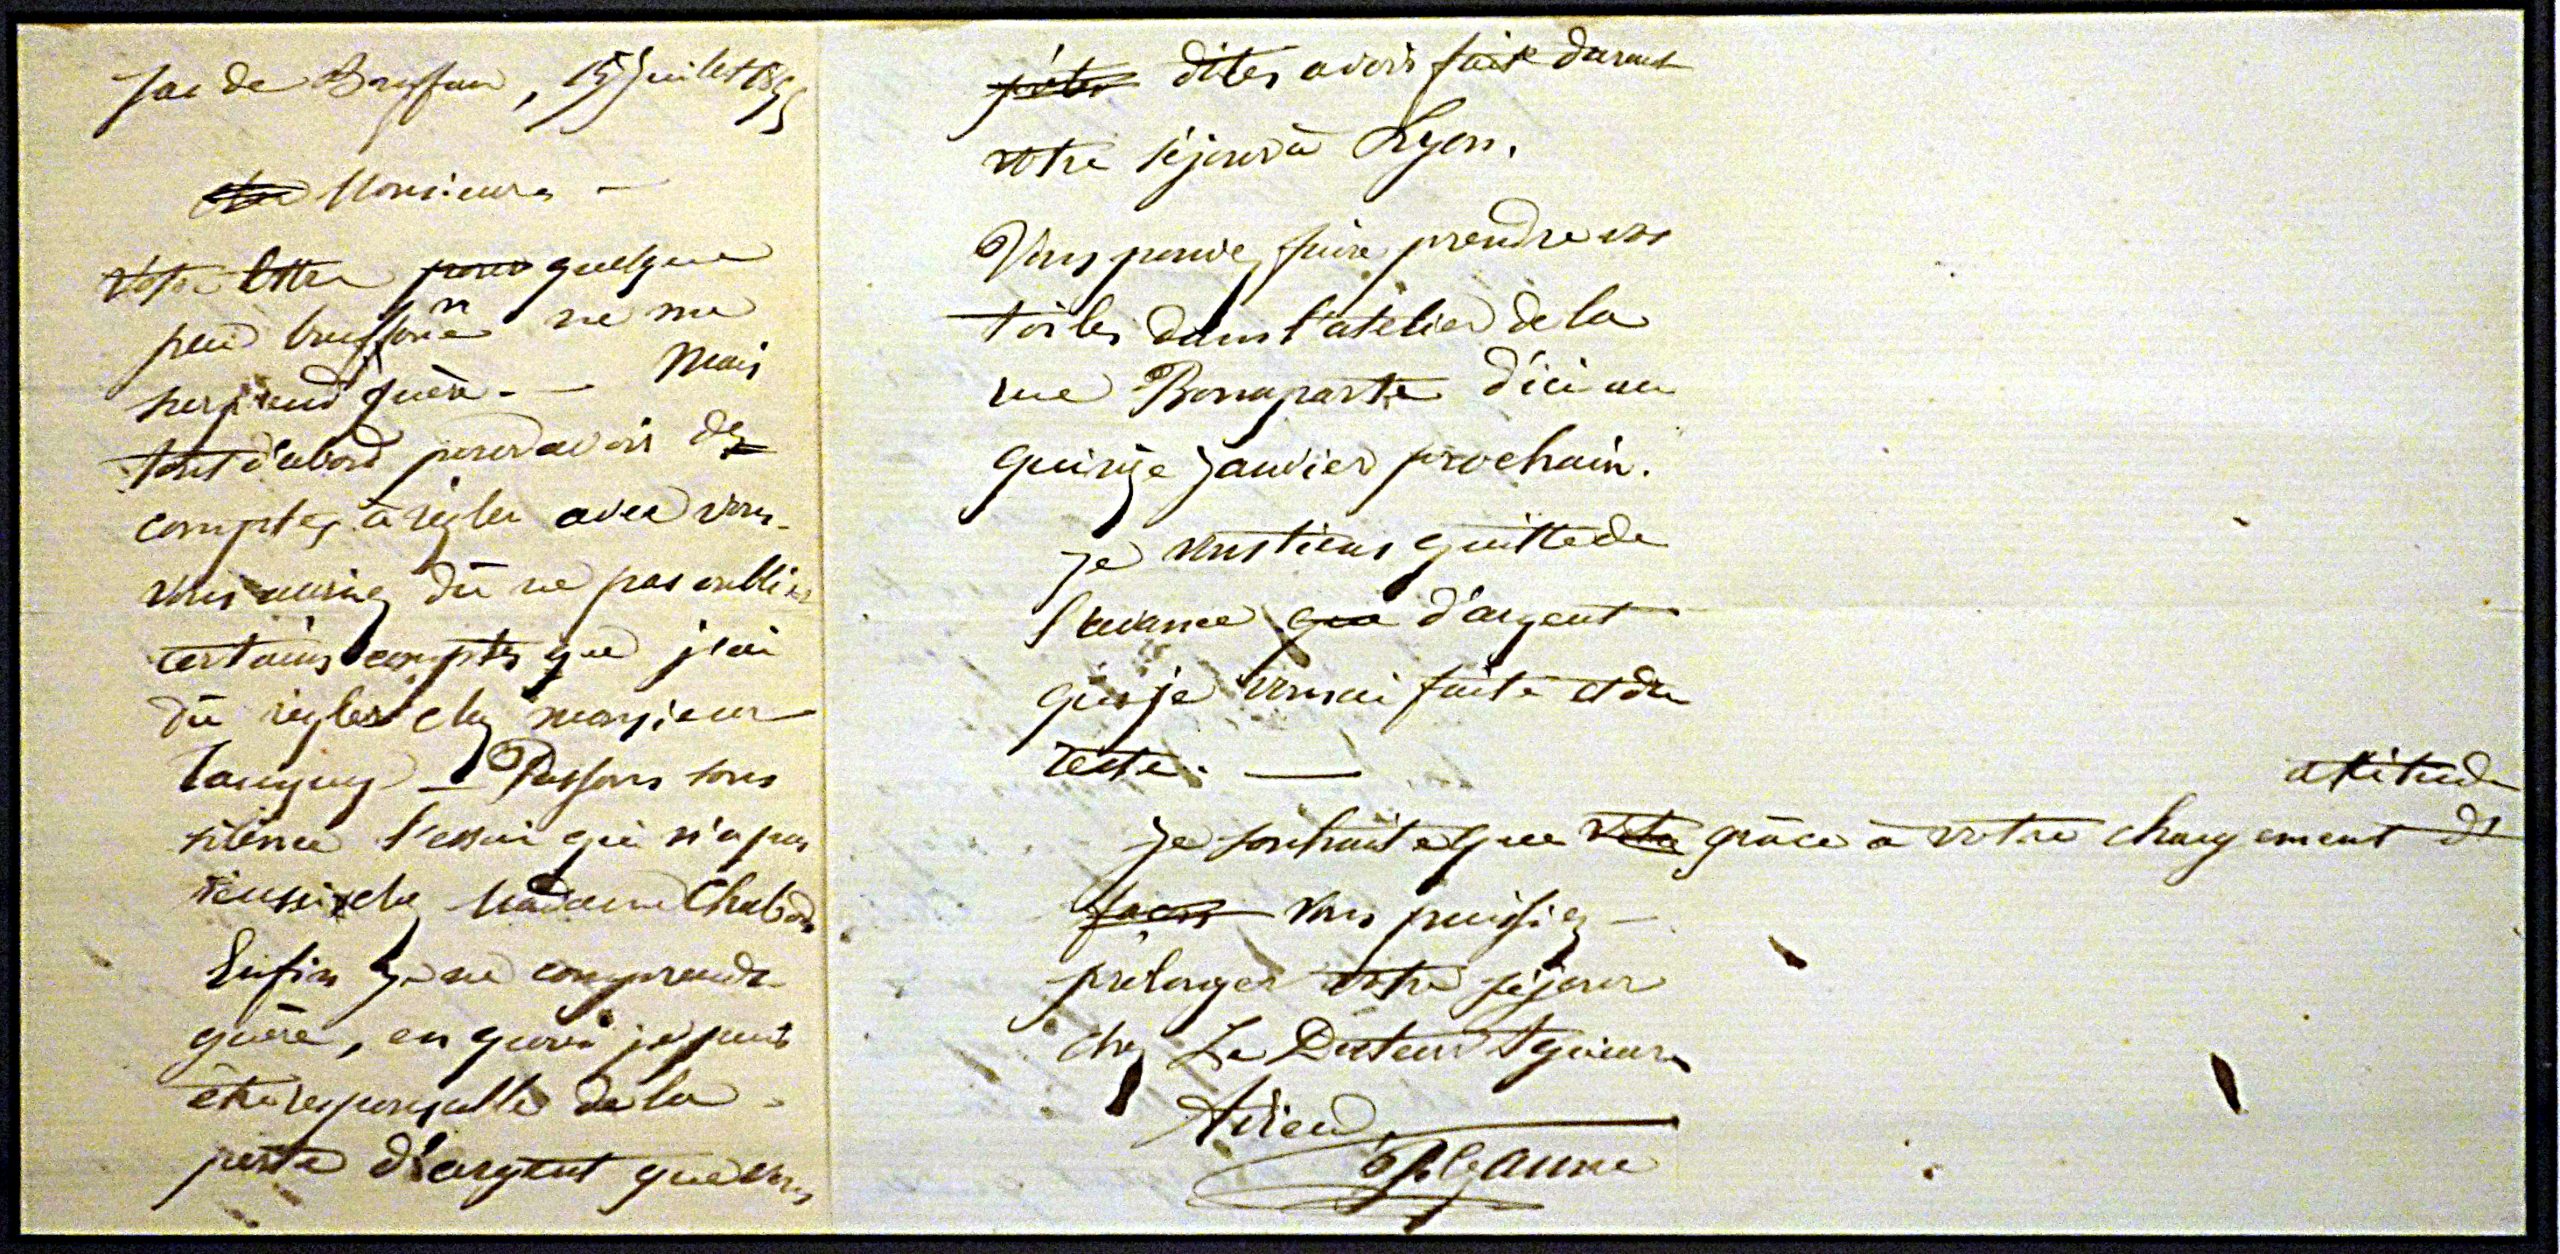 Jas de Bouffan, 15 Juillet 1895
Monsieur, —
Votre lettre quelque
peu bouffonne ne me
surprend guère. — Mais
tout d'abord pour avoir des
comptes à régler avec vous —
vous auriez dû ne pas oublier
certains comptes que j'ai
dû régler chez monsieur
Tanguy — Passons sous
silence l'essai qui n'a pas
réussi chez Madame Chabod
Enfin je ne comprends
guère, en quoi je puis
être responsable de la
perte d'argent que vous
dites avoir fait durant
votre séjour à Lyon.
Vous pouvez faire prendre vos
toiles dans l'atelier de la
rue Bonaparte d'ici au
quinze janvier prochain.
je vous tiens quitte de
l'avance d'argent
que je vous ai faite et du
reste. —
attitude
je souhaite que grâce à votre changement d'
vous puissiez —
prolonger votre séjour
chez Le Docteur
Adieu,
P. Cezanne